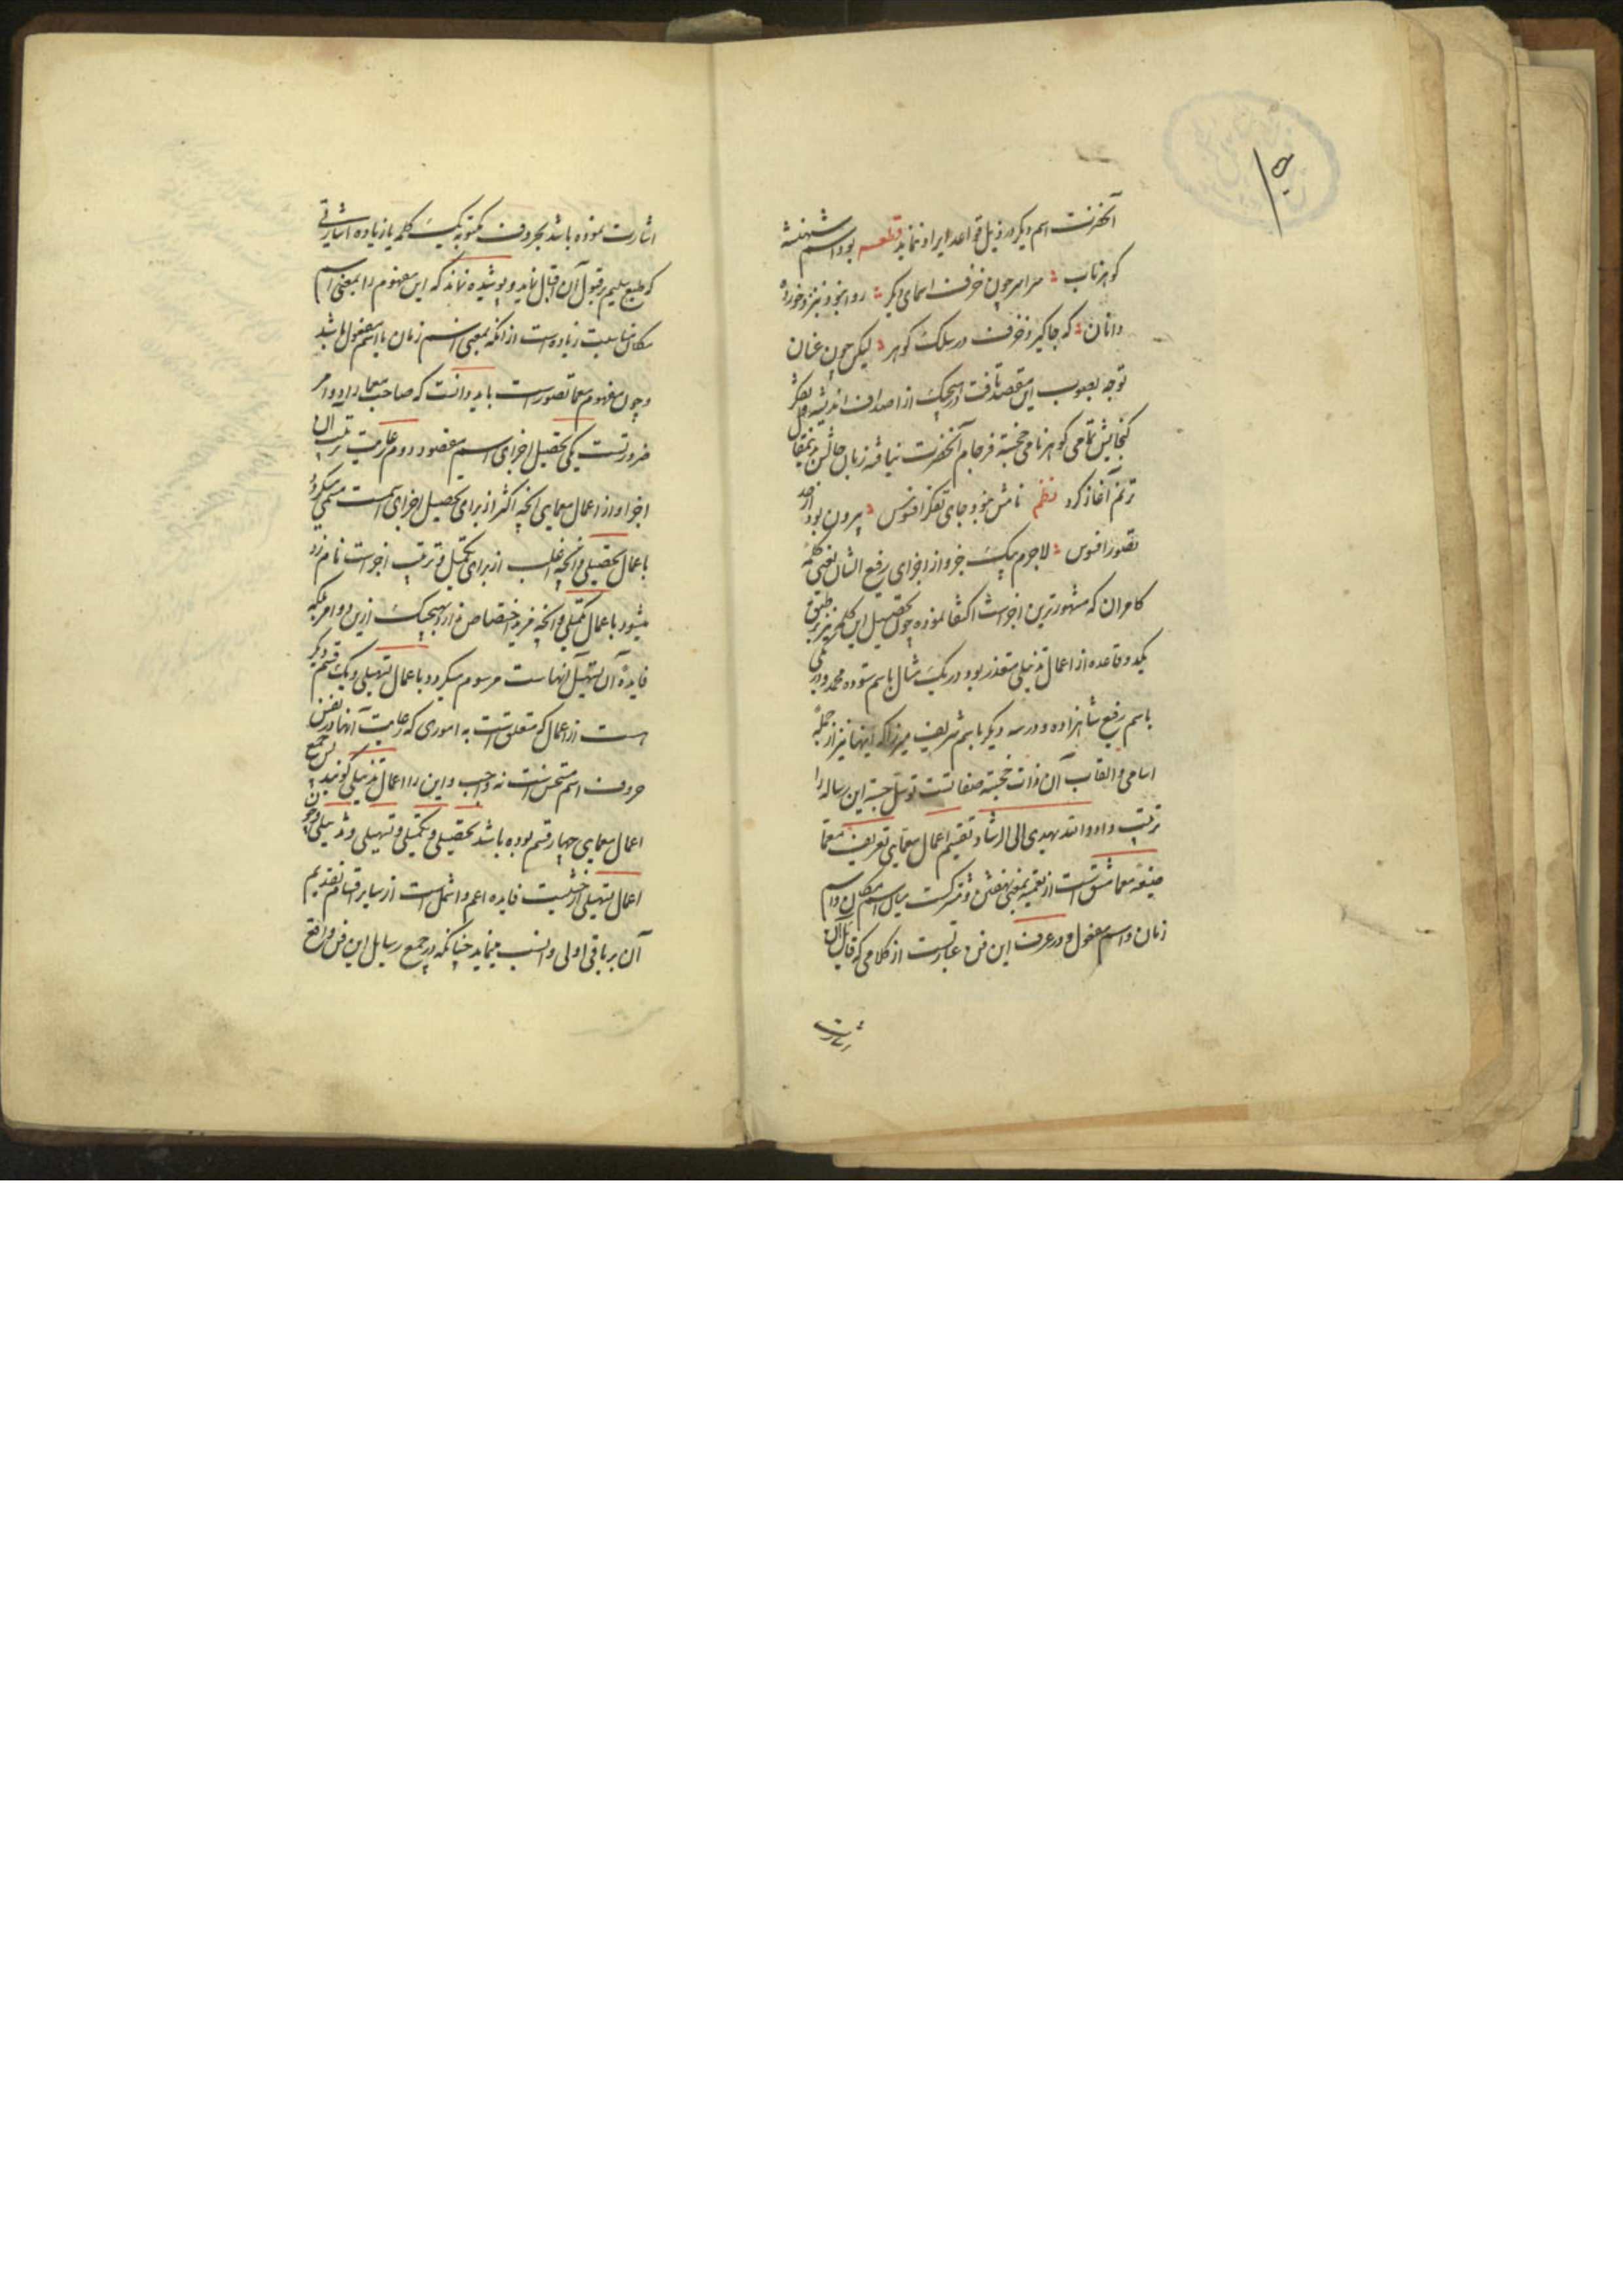 آنحضرت اسم دیکر در ذیل قواعد ایراد نماید قطعه بود اسم شهنشه
کوهر ناب سراسر چون خزف اسمای دیکر روا نبود بنزد خورده
دانان که جا کیرد خزف در سلک کوهر لیکن چون عنان
توجه بصوب این مقصد تافت در هیچک از اصداف اندیشه و تفکر
کنجایش تمامی کوهر نامی خجسته فرجام آنحضرت نیافته زبان حالش بدین مقال
ترنم آغاز کرد نظم نامش نبود جای تفکر افسوس بیرون بود از حد
تصور افسوس لاجرم بیک جزو از اجزای رفیع الشان یعنی کلمه
کامران که مشهورترین اجزاست اکتفا نموده چون تحصیل این کلمه نیز بر طبق
یکدو قاعده از اعمال تذییلی متعذر بود در یک مثال باسم ستوده محمد و در یکی
باسم رفیع شاهزاده و در سه دیکر باسم شریف میرزا که اینها نیز از جمله
اسامی و القاب آن ذات خجسته صفاتست توسل جسته این رساله را
ترتیب داد والله یهدی الی الرشاد تقسیم اعمال معمایی تعریف معما
صیغه معما مشتق است از تعمیه بمعنی نهفتن و مشترکست میان اسم مکان و اسم
زمان و اسم مفعول و در عرف این فن عبارتست از کلامی که قایل آن
اشارت
اشارت نموده باشد بحروف مکتوبه یک کلمه یا زیاده اشارتی
که طبع سلیم بر قبول آن اقبال نماید و پوشیده نماند که این مفهوم را بمعنی اسم
مکان مناسبت زیاده است از آنکه بمعنی اسم زمان یا اسم مفعول باشد
و چون مفهوم معما تصور است باید دانست که صاحب معما را دو امر
ضرورتست یکی تحصیل اجزای اسم مقصود دوم رعایت ترتیب آن
اجزا و از اعمال معمایی آنچه اکثر از برای تحصیل اجزای آنست مسمی میکردد
باعمال تحصیلی و آنچه اغلب از برای تکمیل و ترتیب اجزاست نامزد
میشود باعمال تکمیلی و آنچه مزید اختصاص ندارد بهیچک ازین دو امر بلکه
فایدۀ آن تسهیل آنهاست مرسوم میکردد باعمال تسهیلی و یک قسم دیکر
هست از اعمال که متعلق است به اموری که رعایت آنها در نفس
حروف اسم مستحسن است نه واجب و این را اعمال تذییلی کویند پس جمیع
اعمال معمایی چهار قسم بوده باشد تحصیلی و تکمیلی و تسهیلی و تذییلی و چون
اعمال تسهیلی از حیثیت فایده اعم و اشمل است از سایر اقسام تقدیم
آن بر باقی اولی و انسب مینماید چنانکه در جمیع رسایل این فن واقع